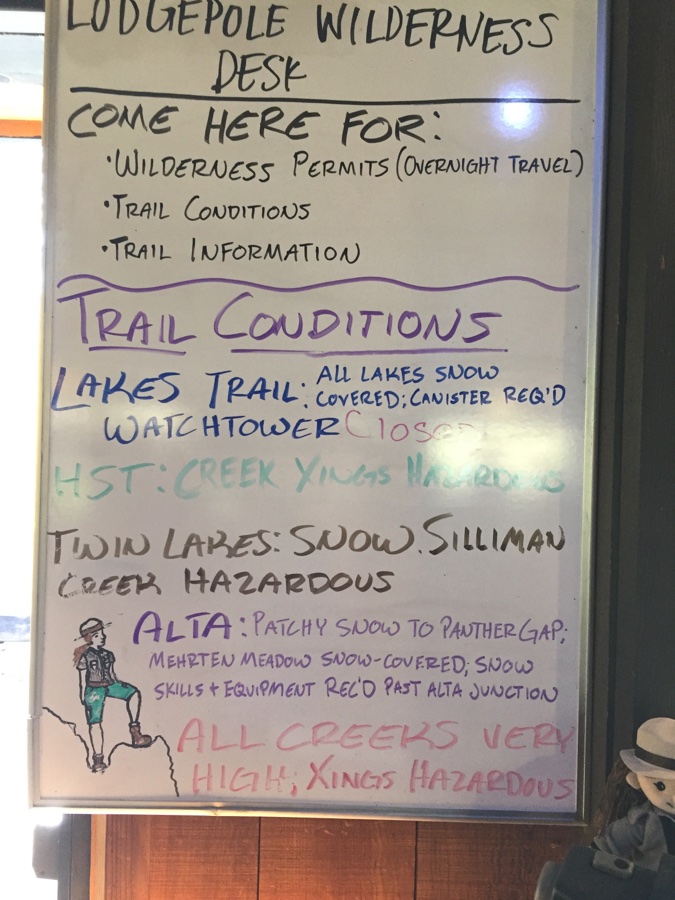 LODGEPOLE WILDERNESS
DESK
COME HERE FOR:
• WILDERNESS PERMITS (OVERNIGHT TRAVEL)
• TRAIL CONDITIONS
• TRAIL INFORMATION
TRAIL CONDITIONS
LAKES TRAIL: ALL LAKES SNOW
COVERED; CANISTER REQ'D
WATCHTOWER Closed
HST: CREEK XINGS HAZARDOUS
TWIN LAKES: SNOW. SILLIMAN
CREEK HAZARDOUS
ALTA: PATCHY SNOW TO PANTHER GAP;
MEHRTEN MEADOW SNOW-COVERED; SNOW
SKILLS + EQUIPMENT REC'D PAST ALTA JUNCTION
ALL CREEKS VERY
HIGH; XINGS HAZARDOUS